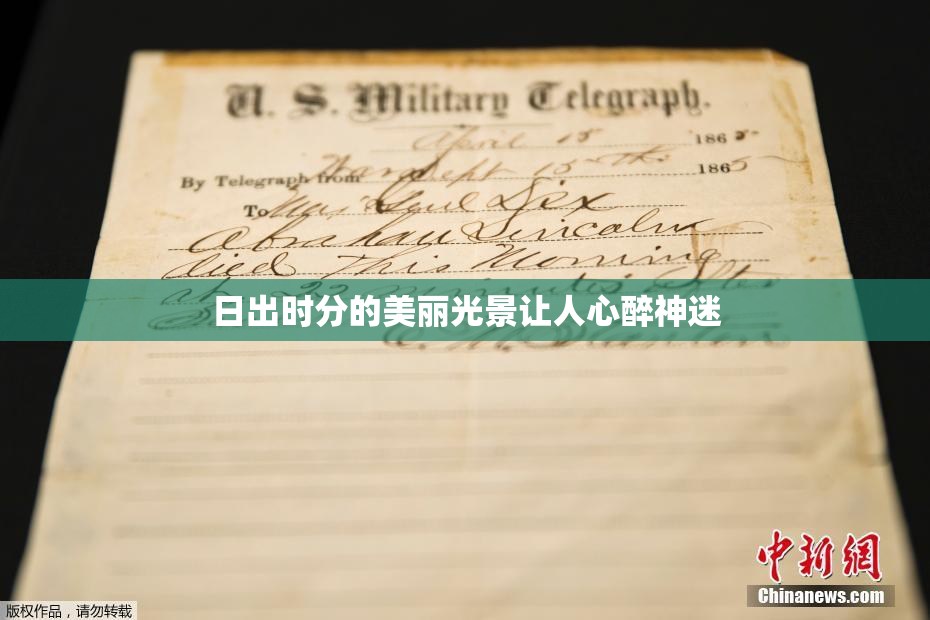 U. S. Military Telegraph.
April 15 1865
By Telegraph from War Dept 15th 1865
To Maj Genl Dix
Abraham Lincoln
died This Morning
at 22 minutes after
日出时分的美丽光景让人心醉神迷
中新網
Chinanews.com
版权作品，请勿转载